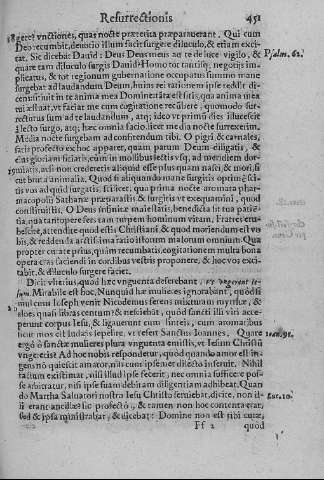 Resurrectionis 451
vnctiones, quas nocte præterita præparauerant. Qui cum
Deo recumbit, deuotio illum facit surgere diluculo, & etiam exci-
tat. Sic dicebat Dauid: Deus Deus meus ad te de luce vigilo, &
Psalm. 62.
quare tam diluculo surgis Dauid? Homo tot tantisq; negotijs im-
plicatus, & tot regionum gubernatione occupatus summo mane
surgebat ad laudandum Deum, huius rei rationem ipse reddit di-
cens: sitiuit in te anima mea Domine: tãta est sitis, quo anima mea
æstuat, vt faciat me cum cogitatione recũbere, quomodo sur-
recturus sum ad te laudandum, atq; ideo vt primũ dies illucescit
è lecto surgo, atq; hæc omnia facio, licet media nocte surrexerim,
Media nocte surgebam ad confitendum tibi. O pigri & carnales,
satis profecto ex hoc apparet, quam parum Deum diligatis, &
eius gloriam sciatis, cum in mollibus lectis vsq; ad meridiem dor-
miatis, ac si non crederetis aliquid esse plus quam nasci & mori, si-
cut bruta animalia. Quod si aliquando mane surgitis
vos ad quid surgatis, scilicet, quo prima nocte aromata phar-
macopolis Sathanæ præparastis & surgitis vt exequamini, quod
constituistis. O Deus infinitæ maiestatis, benedicta sit tua patien-
tia, qua tantopere fers tam turpem hominum vitam, Fratres
attendite quod estis Christiani, & quod moriendum est vo-
bis, & reddenda arctissima ratio istorum malorum omnium. Qua
propter curate prius, quam recumbatis, cogitationem multa bona
opera cras faciendi in cordibus vestris proponere, & hoc vos exci-
tabit, & diluculo surgere faciet.
Dicit vlterius, quod hæc vnguenta deferebant, vt vngerent Ie-
sum. Mirabile est hoc. Nunquid hæ mulieres ignorabant, quòd si-
mul cum Ioseph venit Nicodemus ferens mixturam myrrhæ, &
aloes quasi libras centum? & nesciebāt, quòd sancti illi viri acce-
perunt corpus Iesu, & ligauerunt cum linteis, cum aromatibus
sicut mos est Iudæis sepelire, vt refert Sanctus Ioannes. Quare
Ioan. 19.
ergò ô sanctæ mulieres plura vnguenta emistis, vt Iesum Christũ
vngeretis? Ad hoc nobis respondetur, quòd quando amor est in-
gens nō quiescit animus, nisi cum ipse inseruit. Nihil
factum existimat, nisi illud ipse fecerit, nec omnia sufficere pos-
se arbitratur, nisi ipse suam debitam diligentiam adhibeat. Quan
do Martha Saluatori nostro Iesu Christo seruiebat, dicite, non il-
Luc. 10.
li erant ancillæ? sic profectò, & tamen non hoc contenta erat,
sed & ipsa ministrabat, & dicebat: Domine non est tibi curæ,
Ff 2 quod